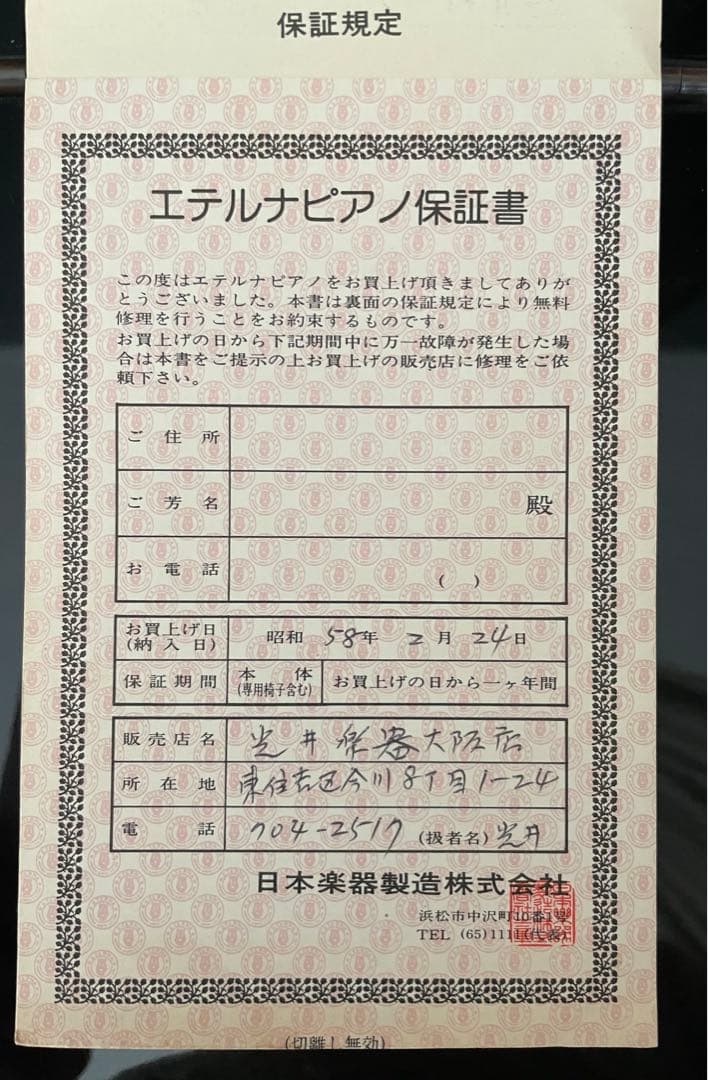 保証規定
エテルナピアノ保証書
この度はエテルナピアノをお買上げ頂きましてありが
とうございました。本書は裏面の保証規定により無料
修理を行うことをお約束するものです。
お買上げの日から下記期間中に万一故障が発生した場
合は本書をご提示の上お買上げの販売店に修理をご依
頼下さい。
ご住所
ご芳名 殿
お電話 ( )
お買上げ日
(納入日) 昭和 58年 2月 24日
保証期間 本体
(専用椅子含む) お買上げの日から一ヶ年間
販売店名 光井楽器大阪店
所在地 東住吉区今川8丁目1-24
電話 704-2517 (扱者名) 光井
日本楽器製造株式会社
浜松市中沢町10番1号
TEL (65)1111(代表)
(切離し無効)